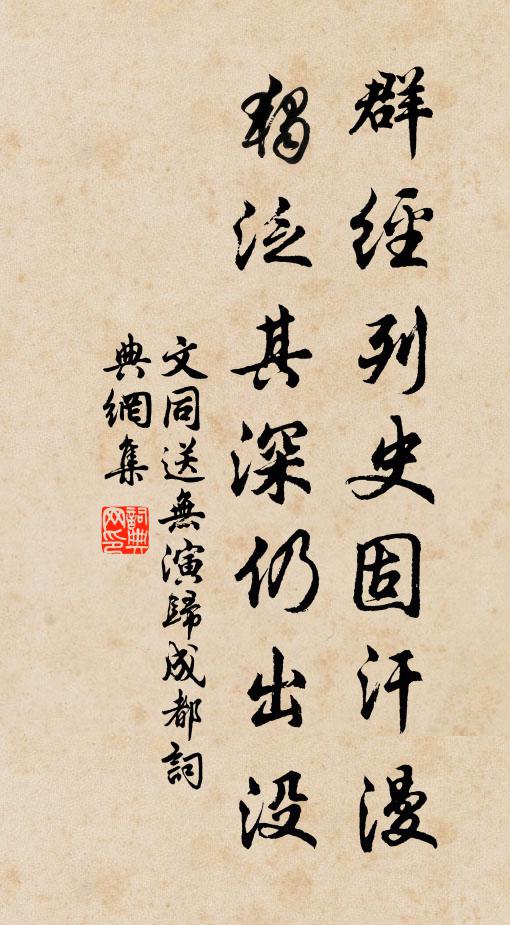 群經列史固汗漫
獨泛其深仍出没
文同送無演歸成都詞
典網集
詞典網印